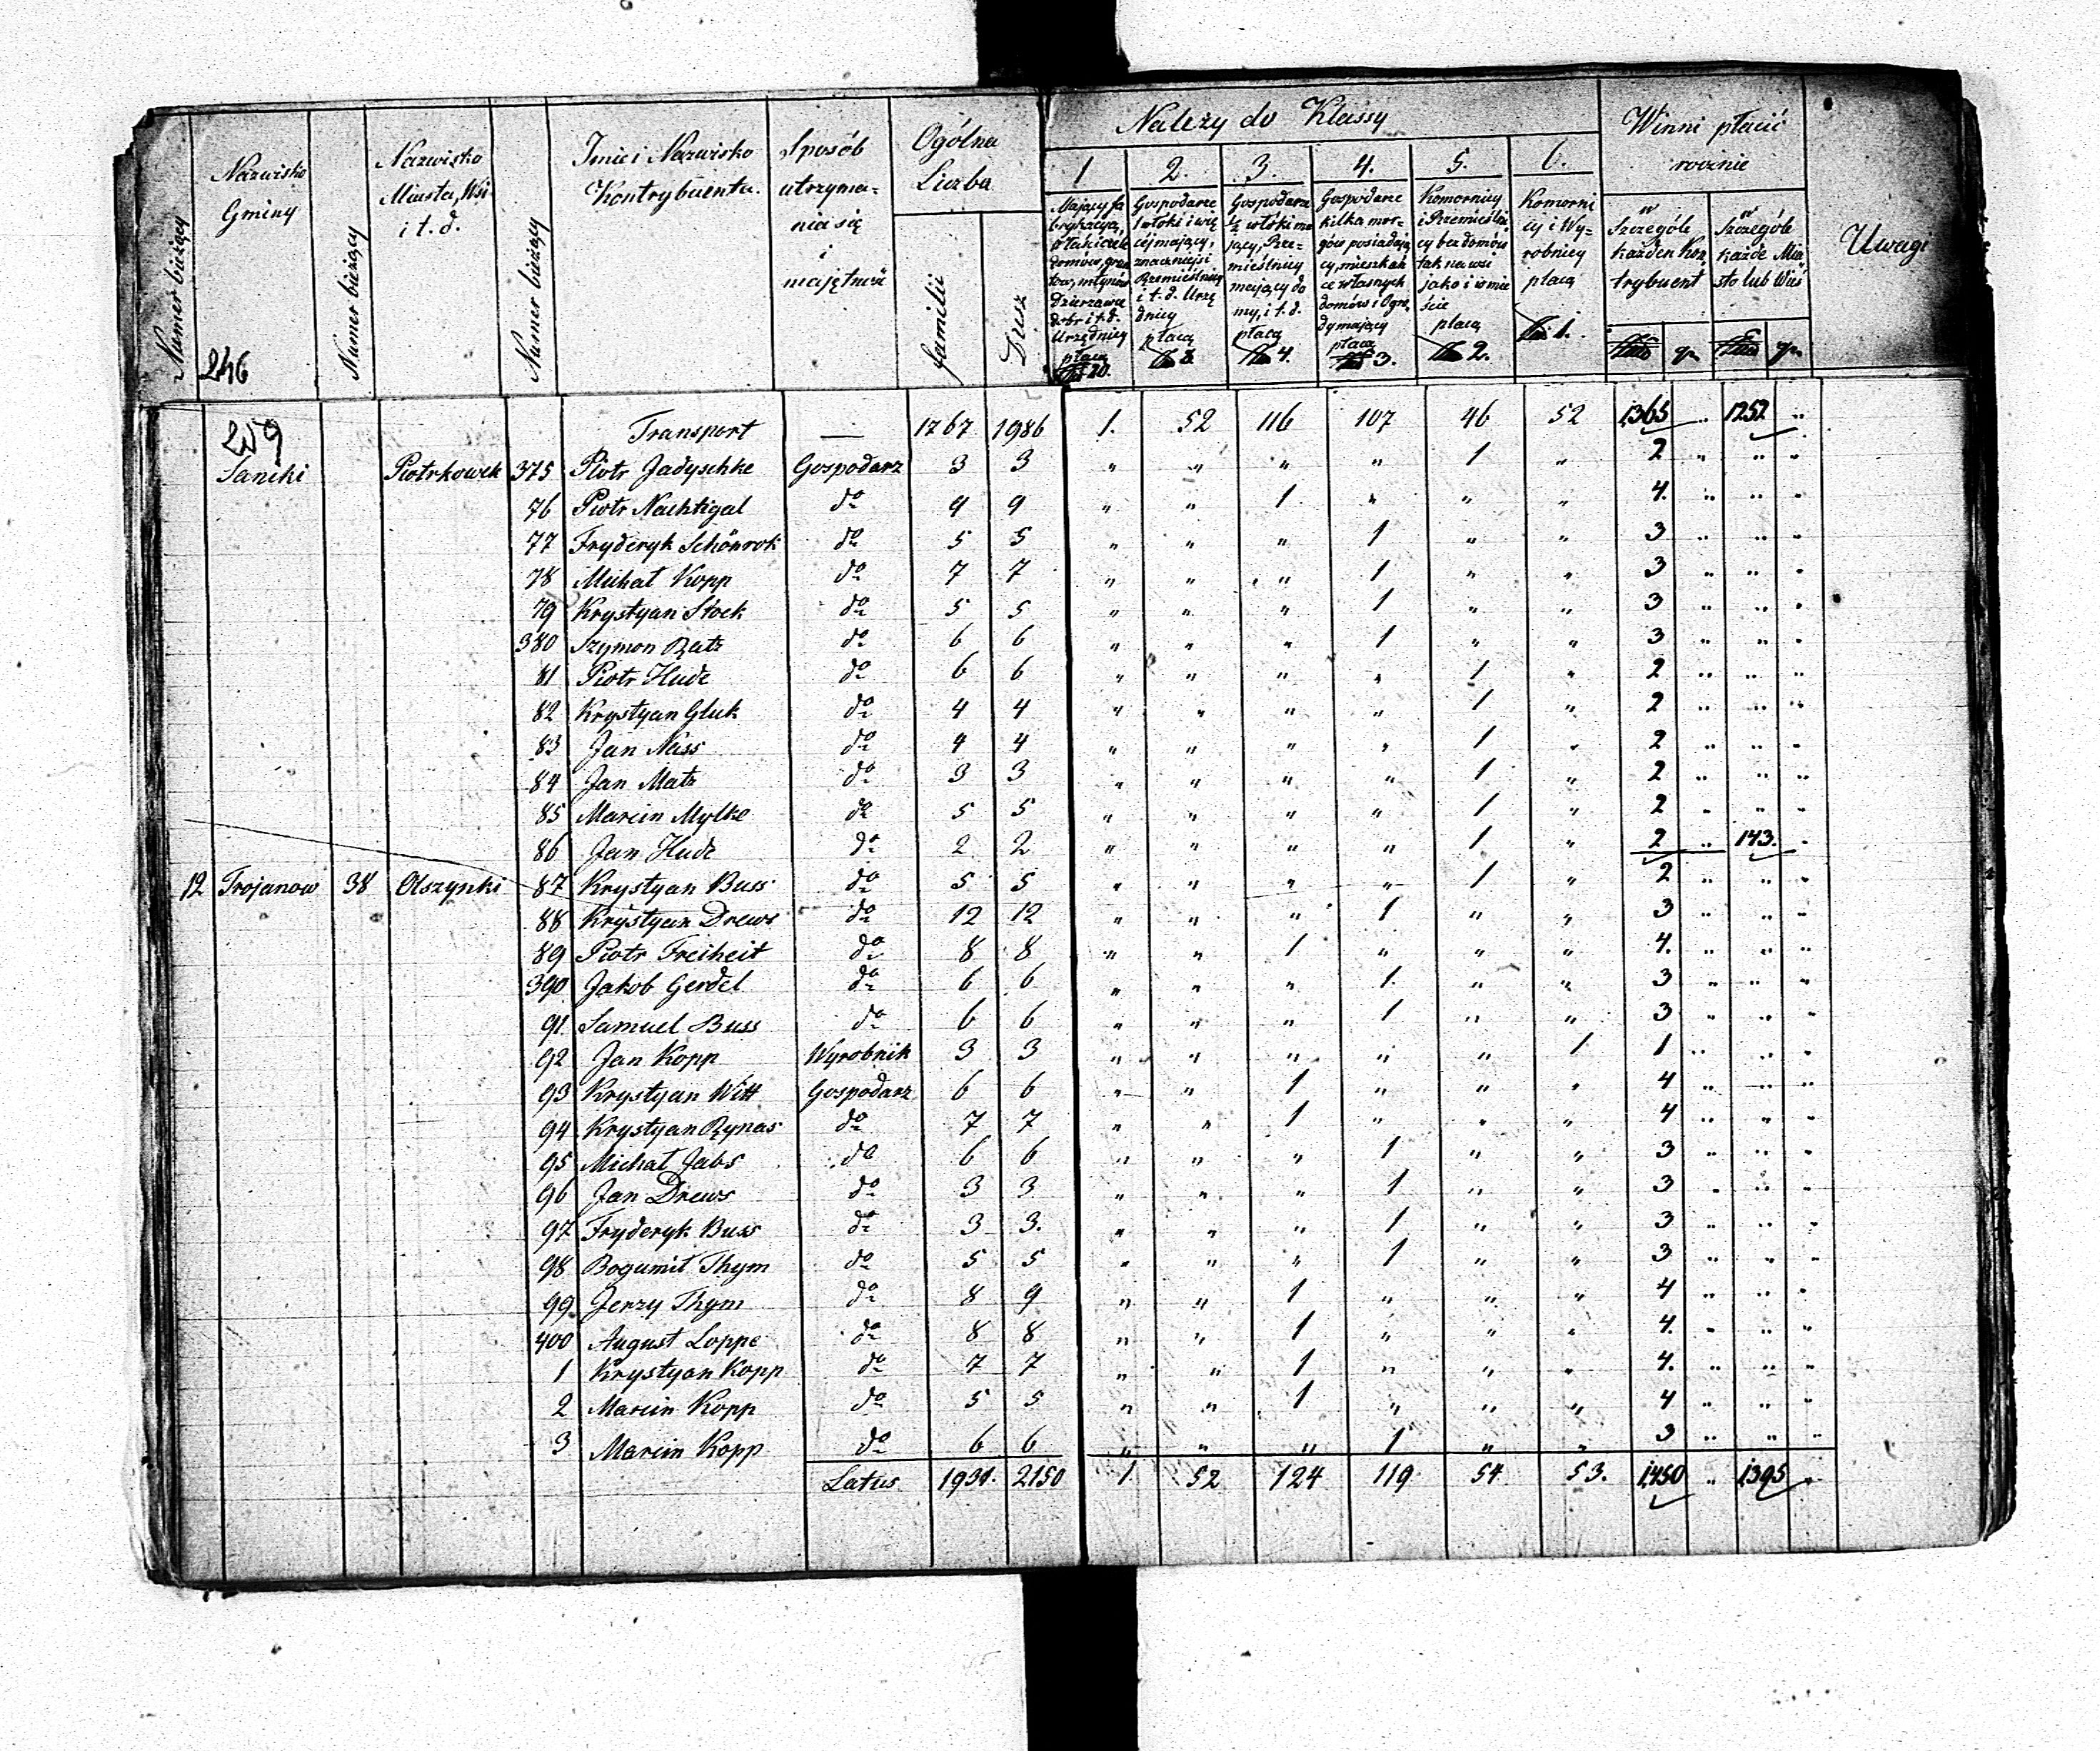 Numer bieżący
Nazwisko Gminy
246
Numer bieżący
Nazwisko Miasta, Wsi i t. d.
Numer bieżący
Imie i Nazwisko Kontrybuenta.
Sposób utrzymania się i majętność
Ogólna Liczba
Familii
Dusz
Należy do Klassy
1
Mający fabrykacyą, Właściciele domów, gruntów, młynów Dzierzawcy dobr i t. d. Urzędnicy płacą 20.
2.
Gospodarze 1 włóki i więcej mający, znaczniejsi Rzemieślnicy i t. d. Urzędnicy płacą 8
3.
Gospodarze ½ włóki mający, Rzemieślnicy mający domy, i t. d. płacą 4.
4.
Gospodarze kilka morgów posiadający, mieszkańce własnych domów i Ogrody mający płacą 3.
5.
Komornicy i Rzemieślnicy bez domów tak na wsi jako i w mieście płacą 2.
6.
Komornicy i Wyrobnicy płacą 1.
Winni płacić rocznie
w Szczególe każden Kontrybuent
gr.
w Szczególe każde Miasto lub Wieś
gr.
Uwagi
259
Transport — 1767 1986 1. 52 116 107 46 52 1365 " 1252 "
Sanniki Piotrkowek 375 Piotr Jadyschke Gospodarz 3 3 " " " " 1 " 2 " " "
76 Piotr Nachtigal do 9 9 " " 1 " " " 4. " " "
77 Fryderyk Schönrok do 5 5 " " " 1 " " 3 " " "
78 Michał Kopp do 7 7 " " " 1 " " 3 " " "
79 Krystyan Stock do 5 5 " " " 1 " " 3 " " "
380 Szymon Ratz do 6 6 " " " 1 " " 3 " " "
81 Piotr Hudz do 6 6 " " " " 1 " 2 " " "
82 Krystyan Gluk do 4 4 " " " " 1 " 2 " " "
83 Jan Näss do 4 4 " " " " 1 " 2 " " "
84 Jan Matz do 3 3 " " " " 1 " 2 " " "
85 Marcin Mylke do 5 5 " " " " 1 " 2 " " "
86 Jan Hudz do 2 2 " " " " 1 " 2 " 143. "
12 Trojanow 38 Olszynki 87 Krystyan Buss do 5 5 " " " " 1 " 2 " " "
88 Krystyan Drews do 12 12 " " " 1 " " 3 " " "
89 Piotr Freiheit do 8 8 " " 1 " " " 4. " " "
390 Jakob Gerdel do 6 6 " " " 1. " " 3 " " "
91 Samuel Buss do 6 6 " " " 1 " " 3 " " "
92 Jan Kopp Wyrobnik 3 3 " " " " " 1 1 " " "
93 Krystyan Witt Gospodarz 6 6 " " 1 " " " 4 " " "
94 Krystyan Rynas do 7 7 " " 1 " " " 4 " " "
95 Michał Jabs do 6 6 " " " 1 " " 3 " " "
96 Jan Drews do 3 3 " " " 1 " " 3 " " "
97 Fryderyk Buss do 3 3. " " " 1 " " 3 " " "
98 Bogumił Thym do 5 5 " " " 1 " " 3 " " "
99 Jerzy Thym do 8 9 " " 1 " " " 4 " " "
400 August Loppe do 8 8 " " 1 " " " 4. " " "
1 Krystyan Kopp do 7 7 " " 1 " " " 4. " " "
2 Marcin Kopp do 5 5 " " 1 " " " 4 " " "
3 Marcin Kopp do 6 6 " " " 1 " " 3 " " "
Latus 1931. 2150 1. 52 124 119 54 53. 1450 " 1395 "